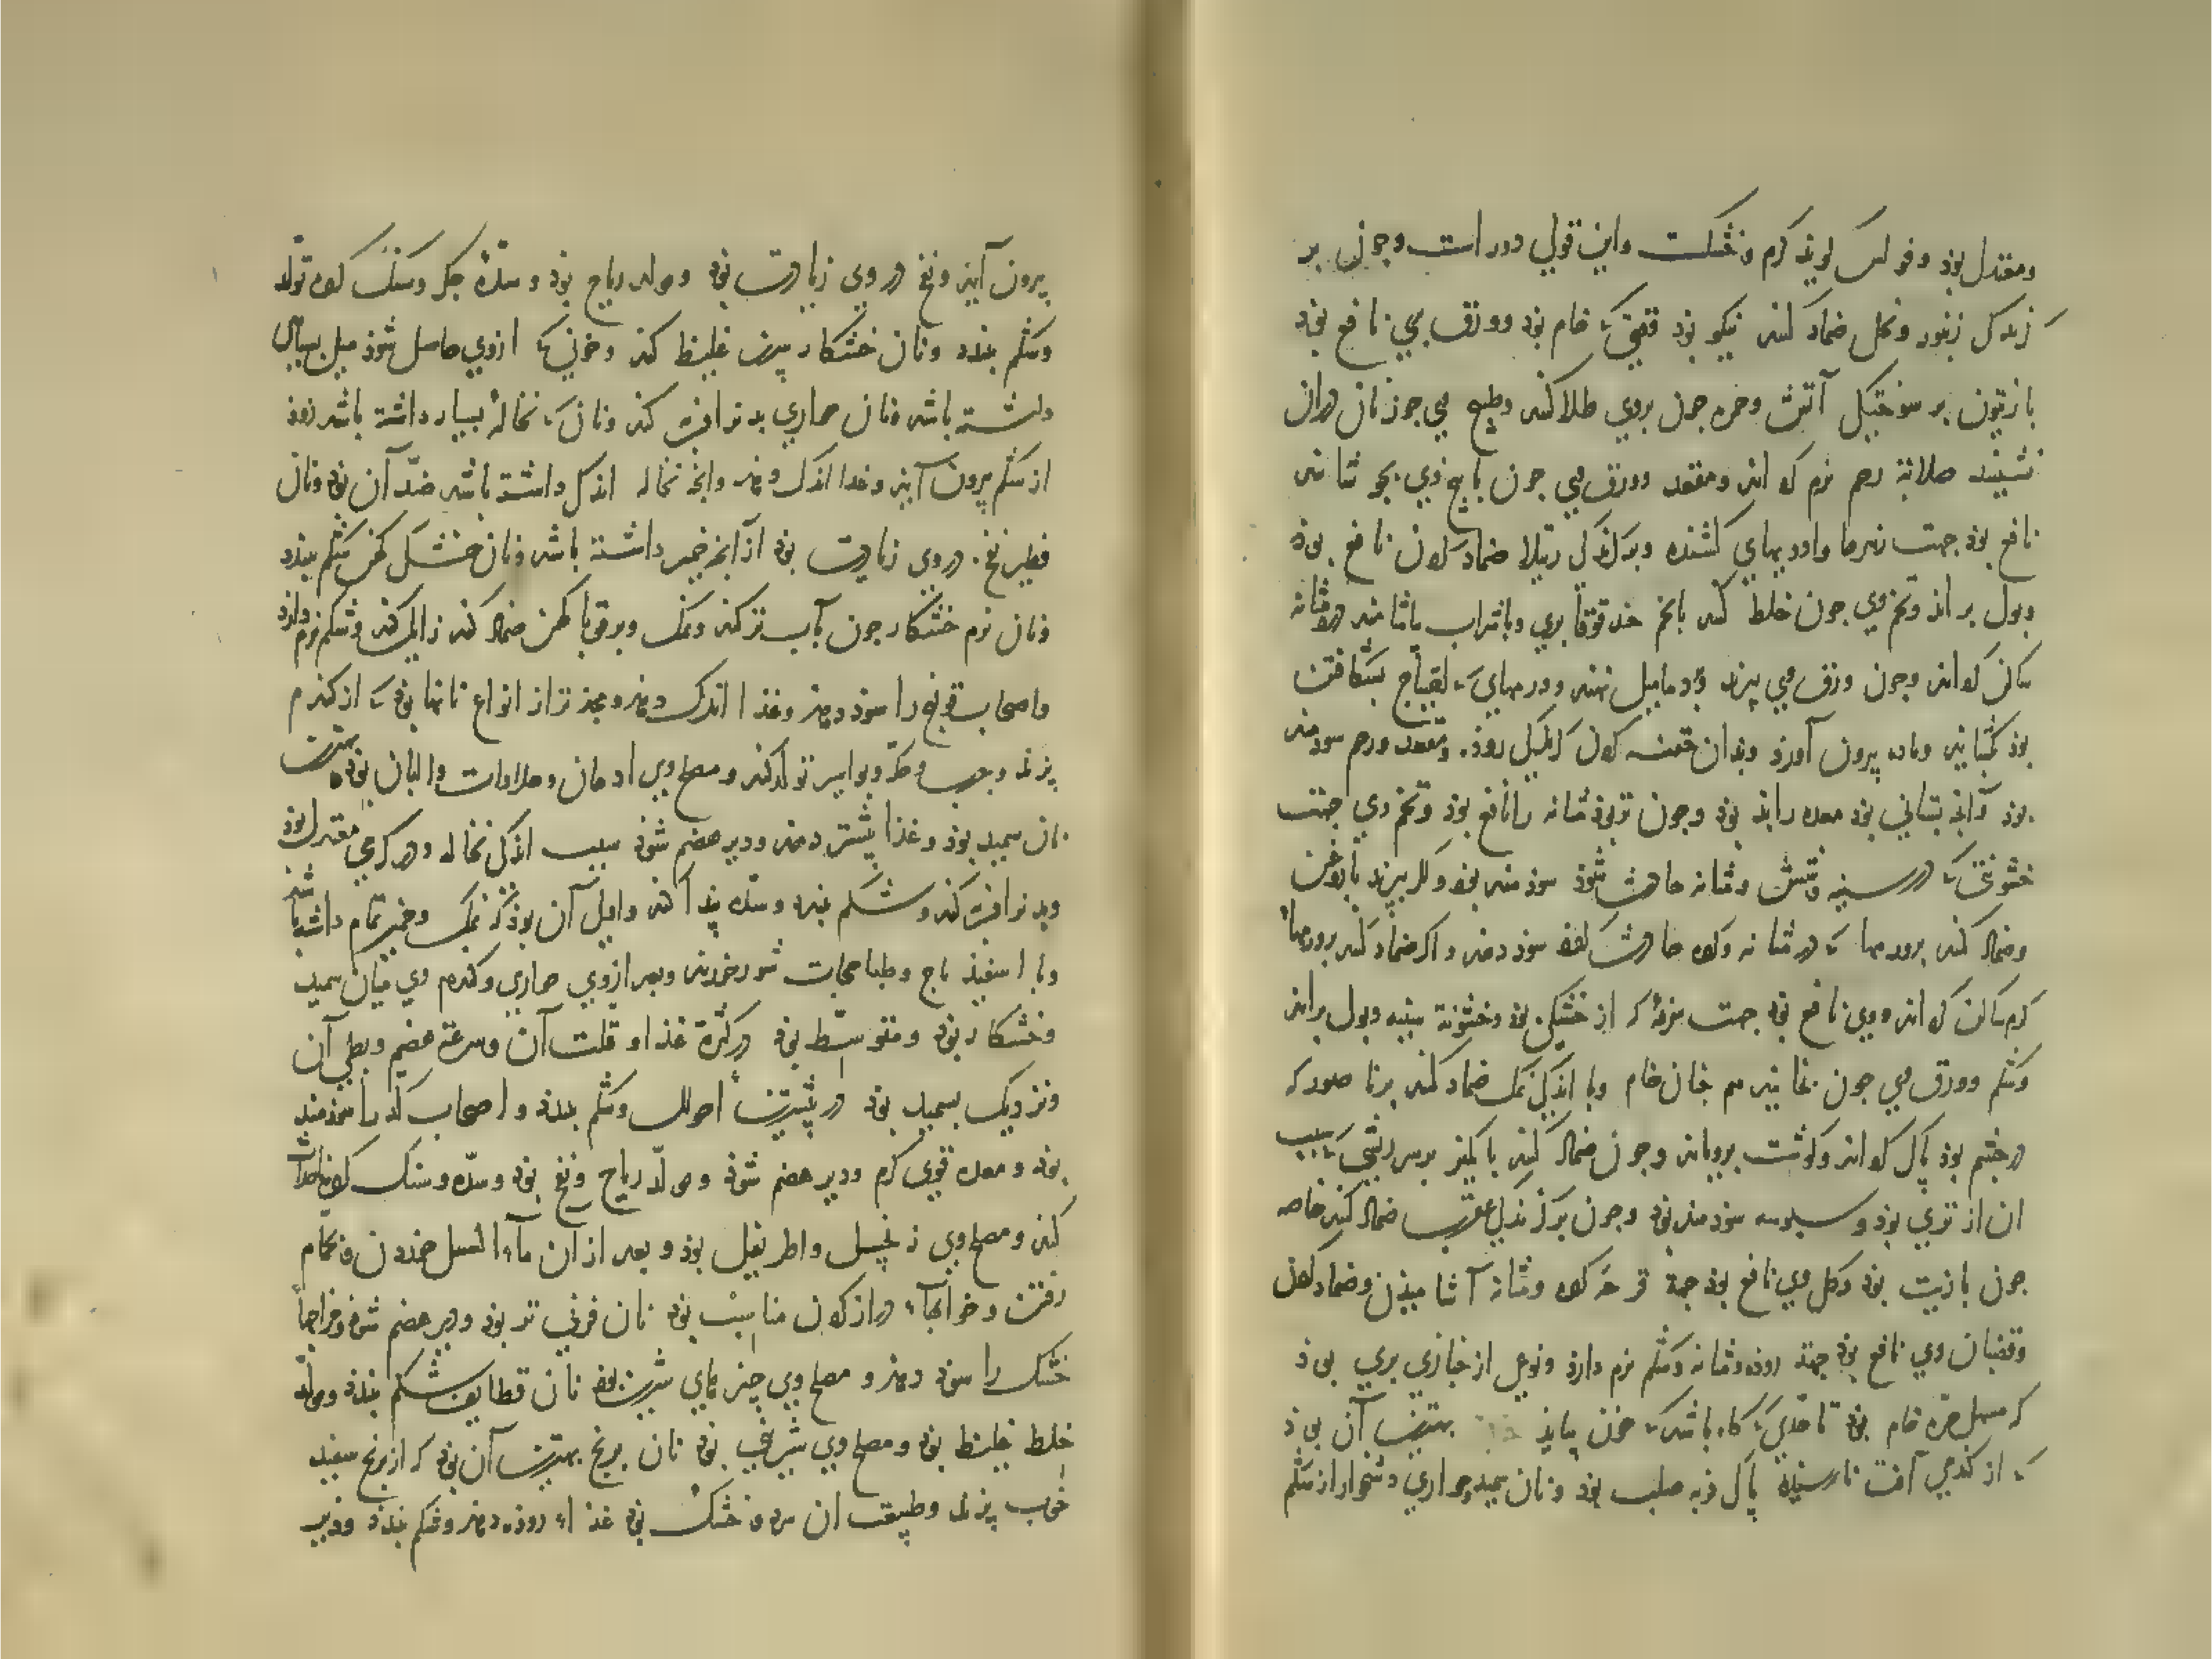 ومعتدل بود وفولس گوید گرم و خشکست واین قولی دورات وجون بر
گزیدگی زنبور ونحل ضماد کنند نیکو بود وورق وی نافع بود
با زیتون بر سوختگی آتش وحمره جون بروی طلا کنند وطبیخ وی جون زنان دران
نشینند صلابة رحم نرم کرداند ومقعد وورق وی جون با بیخ وی بجوشانند
نافع بود جهت زهرها وادویهای کشنده وبر گزیدگی رتیلا ضماد کردن نافع بود
وبول براند وتخم وی جون خلط کنند با تخم حندقوقا بری وباشراب بیاشامند درد مثانه
ساکن کرداند وجون ورق وی بپزند وبر دمامیل نهند وورمهای که احتیاج بشکافتن
بود بکشاند وماده بیرون آورد وبدان حقنه کردن روده ومقعد ورحم سودمند
بود وآنچه بستانی بود معده را بد بود وجون تر بود مثانه را نافع بود وتخم وی جهت
خشونتی که در سینه وشش ومثانه حادث شود سودمند بود وگر بپزند با روغن
وضماد کنند برورمها که در مثانه وکرده حادث شود سود دهد واکر ضماد کنند برورمهاء
گرم ساکن کرداند ووی نافع بود جهت سرفه که از خشکی بود وخشونة سینه وبول براند
وشکم وورق وی جون بخایند هم جنان خام وبا اندکی نمک ضماد کنند برناصور که
در چشم بود پاک کرداند وگوشت برویاند وجون ضماد کنند با کمیز برسر ریشی که بسبب
ان از تری بود وسبوسه سودمند بود وجون بر گزندگی عقرب ضماد کنند خاصه
جون با زیت بود وکل وی نافع بود جهة قرحه کرده ومثانه آشامیدن وضماد کردن
وقضبان وی نافع بود جهة روده ومثانه وشکم نرم دارد ونوعی از خبازی بری بود
که مسهل مره خام بود تا حدی که گاه باشد که خون بیاید بهترین آن بود
که از گندمی آفت نارسیده پاک فربه صلب بود ونان سمید وحواری دشخوار از شکم
بیرون آیند ونفخ در وی زیادت بود ومولد ریاح بود وسدّه جگر وسنگ کرده تولد
وشکم ببندد ونان خشکار خون غلیظ کند وخونی که ازوی حاصل شود میل بسیاهی
داشته باشد ونان حواری بدن را فربه کند ونان که نخالهٔ بسیار داشته باشد زود
از شکم بیرون آیند وغذا اندک دهد وانچه نخاله اندکی داشته باشد ضدّ آن بود ونان
فطیر نفخ در وی زیادت بود از انچه خمیر داشته باشد ونان خشک کهن شکم ببندد
ونان نرم خشکار جون بآب تر کنند ونمک وبر قوبا کهن ضماد کنند زایل کند وشکم نرم دارد
واصحاب قولنج را سود دهد وغذا اندک دهد از انواع نانها بود که از گندم
پزند وجرب وحکّه وبواسیر تولد کند ومصلح وی ادهان وحلاوات والبان بود بهترین
نان سمید بود وغذا بیشتر دهد ودیر هضم شود بسبب اندکی نخاله ودر گرمی معتدل بود
وبدن را فربه کند وشکم ببندد وسده پیدا کند واولی آن بود که نمک وخمیر تمام داشته باشد
وبا اسفیدباج وطباهجات شور خورند وبعد ازوی حواری وگندم وی میان سمید
وخشکار بود ومتوسّط بود در کثرة غذا و قلت آن وسرعة هضم وبطی آن
ونزدیک بسمید بود در بیشترین احوال وشکم ببندد واصحاب کد را سودمند
بود ومعده قوی گرم ودیر هضم شود ومولّد ریاح ونفخ بود وسدّه وسنگ کرده احداث
کند ومصلح وی زنجبیل واطریفل بود وبعد از ان ماء العسل خوردن وبحمام
رفتن وخوابهاء دراز کردن مناسب بود نان فرنی تر بود ودیر هضم شود ومزاجهاء
خشک را سود دهد ومصلح وی چیزهای شیرین بود نان قطایف شکم ببندد ومولّد
خلط غلیظ بود ومصلح وی شیرینی بود نان برنج بهترین آن بود که از برنج سفید
خوب پزند وطبیعت ان سرد وخشک بود غذاء روده دهد وشکم ببندد ودیر